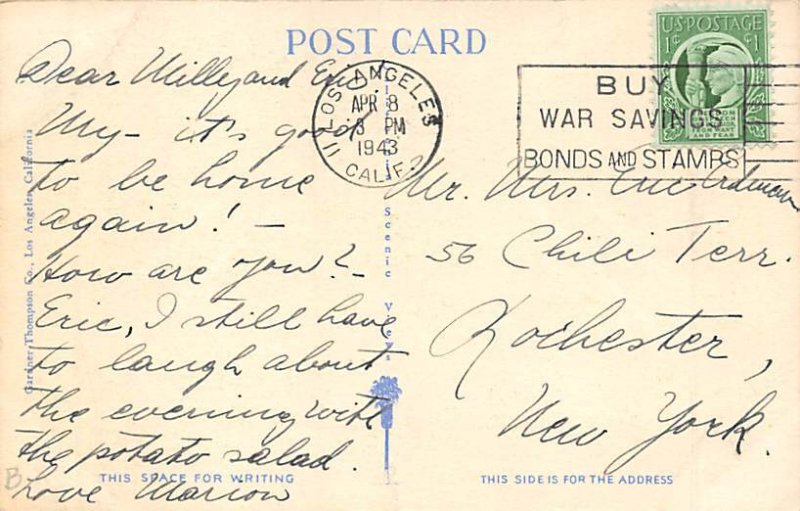 POST CARD
Dear Milly and Eric
My - it's good
to be home
again! -
How are you? -
Eric, I still have
to laugh about
the evening with
the potato salad.
Love Marion
THIS SPACE FOR WRITING
Gardner-Thompson Co., Los Angeles, California
Scenic View
LOS ANGELES
APR 8
PM
1943
11 CALIF.
BUY
WAR SAVINGS
BONDS AND STAMPS
U.S. POSTAGE
1¢ 1¢
FROM WANT
AND FEAR
Mr. Mrs. Eric
56 Chili Terr.
Rochester,
New York.
THIS SIDE IS FOR THE ADDRESS
B